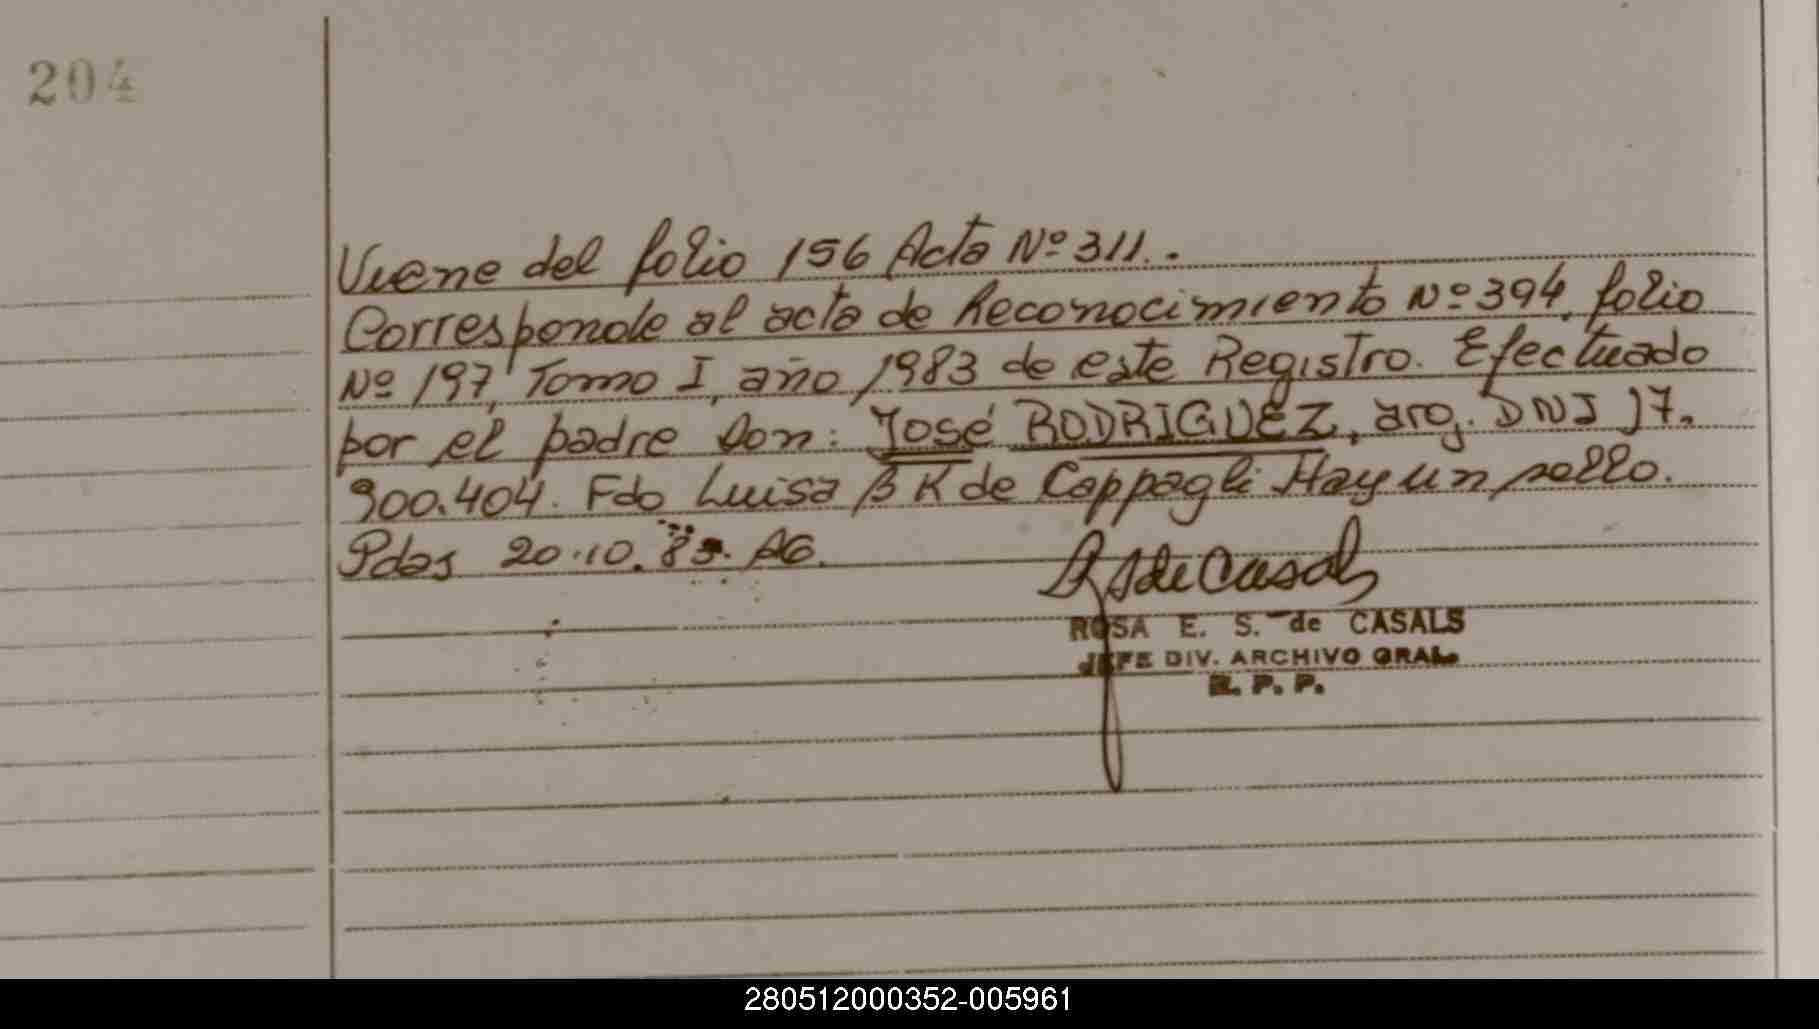 204
Viene del folio 156 Acta Nº 311.
Corresponde al acta de Reconocimiento Nº 394, folio
Nº 197, Tomo I, año 1983 de este Registro. Efectuado
por el padre Don: José RODRIGUEZ, arg. DNI 17.
900.404. Fdo Luisa B K de Cappagli Hay un sello.
Pdas 20.10. AG.
RS de Casals
ROSA E. S. de CASALS
JEFE DIV. ARCHIVO GRAL.
R. P. P.
280512000352-005961